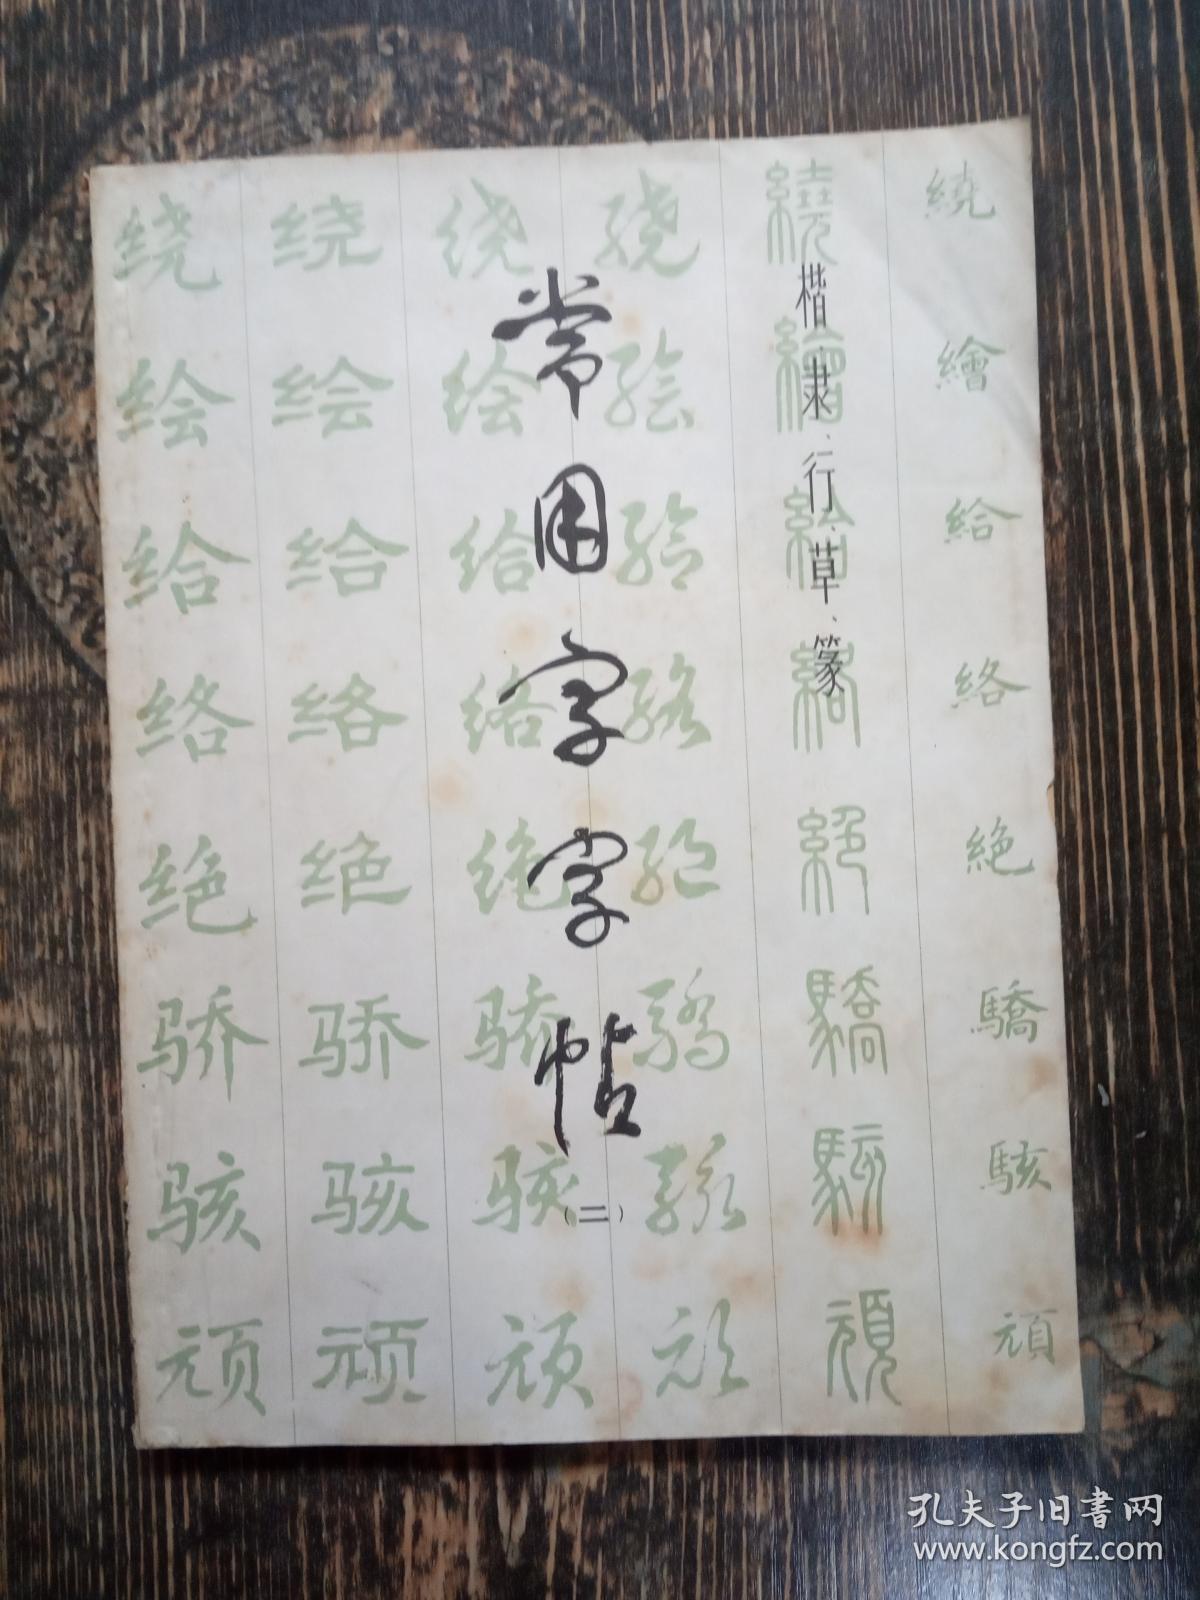 常用字字帖
（二）
楷、隶、行、草、篆
绕 绕 绕 绕 繞 繞
绘 绘 绘 绘 繪 繪
给 给 给 给 給 給
络 络 络 络 絡 絡
绝 绝 绝 绝 絕 絶
骄 骄 骄 驕 驕 驕
骇 骇 骇 骇 駭 駭
顽 顽 顽 顽 頑 頑
孔夫子旧书网
www.kongfz.com